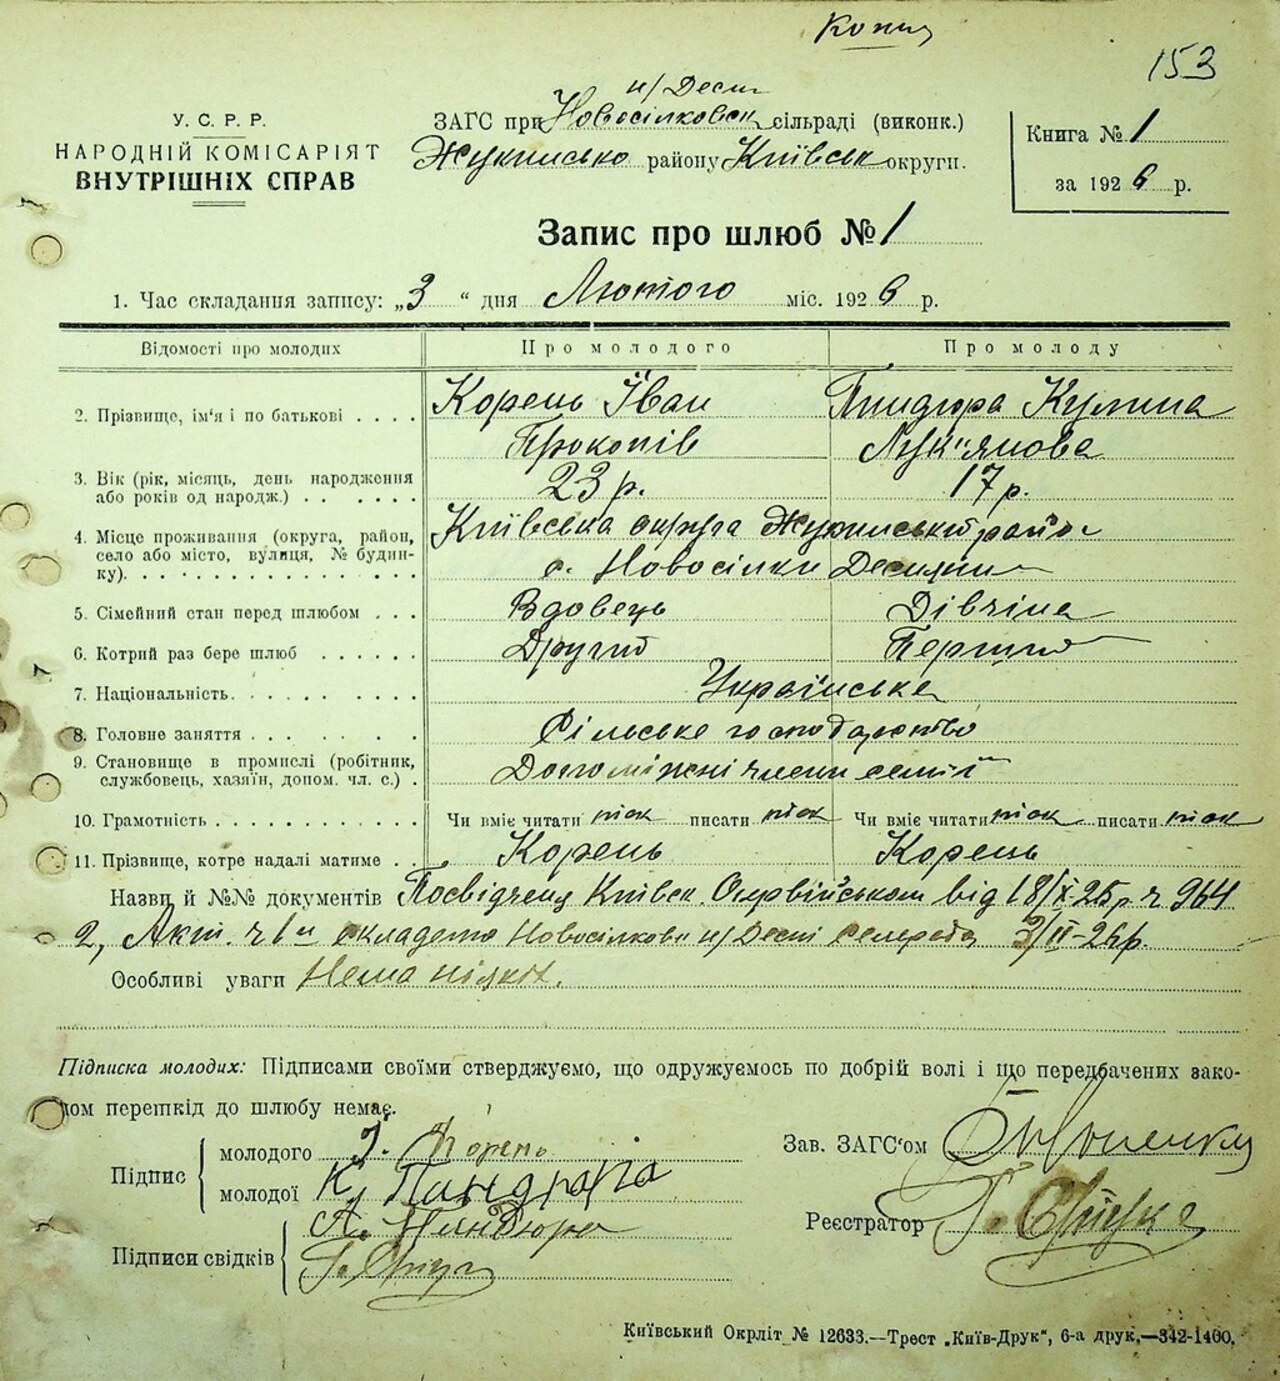 Копия
153
У. С. Р. Р.
НАРОДНІЙ КОМІСАРІЯТ
ВНУТРІШНІХ СПРАВ
н/Десн.
ЗАГС при Новосілковск. сільраді (виконк.)
Жукинсько району Київськ округи.
Книга № 1
за 1926 р.
Запис про шлюб № 1
1. Час складання запису: „3“ дня Лютого міс. 1926 р.
Відомості про молодих Про молодого Про молоду
2. Прізвище, ім'я і по батькові . . . . Корень Іван Пиндюра Кулина
Прокопів Лук"янова
3. Вік (рік, місяць, день народження 23 р. 17 р.
або років од народж.) . . . . . . .
4. Місце проживання (округа, район, Київська округа Жукинський район
село або місто, вулиця, № будин- с. Новосілки Деснян
ку). . . . . . . . . . . . . . .
5. Сімейний стан перед шлюбом . . . Вдовець Дівчина
6. Котрий раз бере шлюб . . . . . . Другий Перший
7. Національність. . . . . . . . . Українське
8. Головне заняття . . . . . . . . Сільське господарство
9. Становище в промислі (робітник, Допоміжні члени семії
службовець, хазяїн, допом. чл. с.) .
10. Грамотність . . . . . . . . . . . Чи вміє читати так писати так Чи вміє читати так писати так
11. Прізвище, котре надалі матиме . . Корень Корень
Назви й №№ документів Посвідчения Київск. Окрвійськом від 18/X-25 р. ч 964
2, Акт. ч 1 складено Новосілков н/Десні 3/II-26 р.
Особливі уваги Нема ніяких.
Підписка молодих: Підписами своїми стверджуємо, що одружуємось по добрій волі і що передбачених зако-
ном перешкід до шлюбу немає.
Підпис
молодого І. Корень
молодої К. Пандюра
Підписи свідків
А. Пиндюра
Зав. ЗАГС'ом
Реєстратор
Київський Окрліт № 12633.—Трест „Київ-Друк“, 6-а друк.—342-1400.